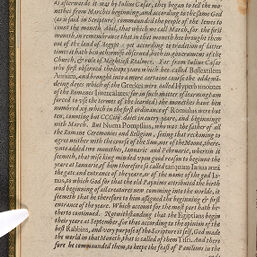 as afterwards it was) by Iulius Cæsar, they began to tell the mo-
nethes from Marches beginning: and according to the same God
(as is sayd in Scripture) commaunded the people of the Iewes to
count the moneth Abib, that which we call March, for the first
moneth, in remembraunce that in that moneth he brought them
out of the land of Ægipt: yet according to tradition of latter
times it hath bene otherwise observed, both in governement of the
Church, & rule of Mightiest Realmes. For from Iulius Cæsar
who first observed the leape yeere which he called Bissextilem
Annum, and brought into a more certaine course the odde wan-
dring dayes which of the Greekes were called
of the Romanes intercalares (for in such matter of learning I am
forced to use the termes of the learned) the monethes have ben
nombred xij. which in the first ordinaunce of Romulus were but
tenne, counting but CCCiiij. dayes in every yeare, and beginning
with March. But Numa Pompilius, who was the father of al
the Romane ceremonies and religion, seeing that reckoning to
agree neither with the course of the sonne, nor of the Moone, there-
unto added two monethes, Ianuary and February: wherein it
seemeth, that wise king minded upon good reason to begin the
yeare at Ianuarie, of him therefore so called tanquam Ianua anni
the gate and entraunce of the yere, or of the name of the god Ia-
nus, to which God for that the old Paynims attributed the byrth
and beginning of all creatures new comming into the worlde, it
seemeth that he therfore to him assigned the beginning & first
entraunce of the yeare. Which account for the most part hath he-
therto continued. Notwithstanding that the Ægiptians beginne
theyr yeare at September, for that according to the opinion of the
best Rabbins, and very purpose of the Scripture selfe, God made
the worlde in that Moneth, that is called of them Tisri. And there
fore he commaunded them, to keepe the feast of Pavilions in the